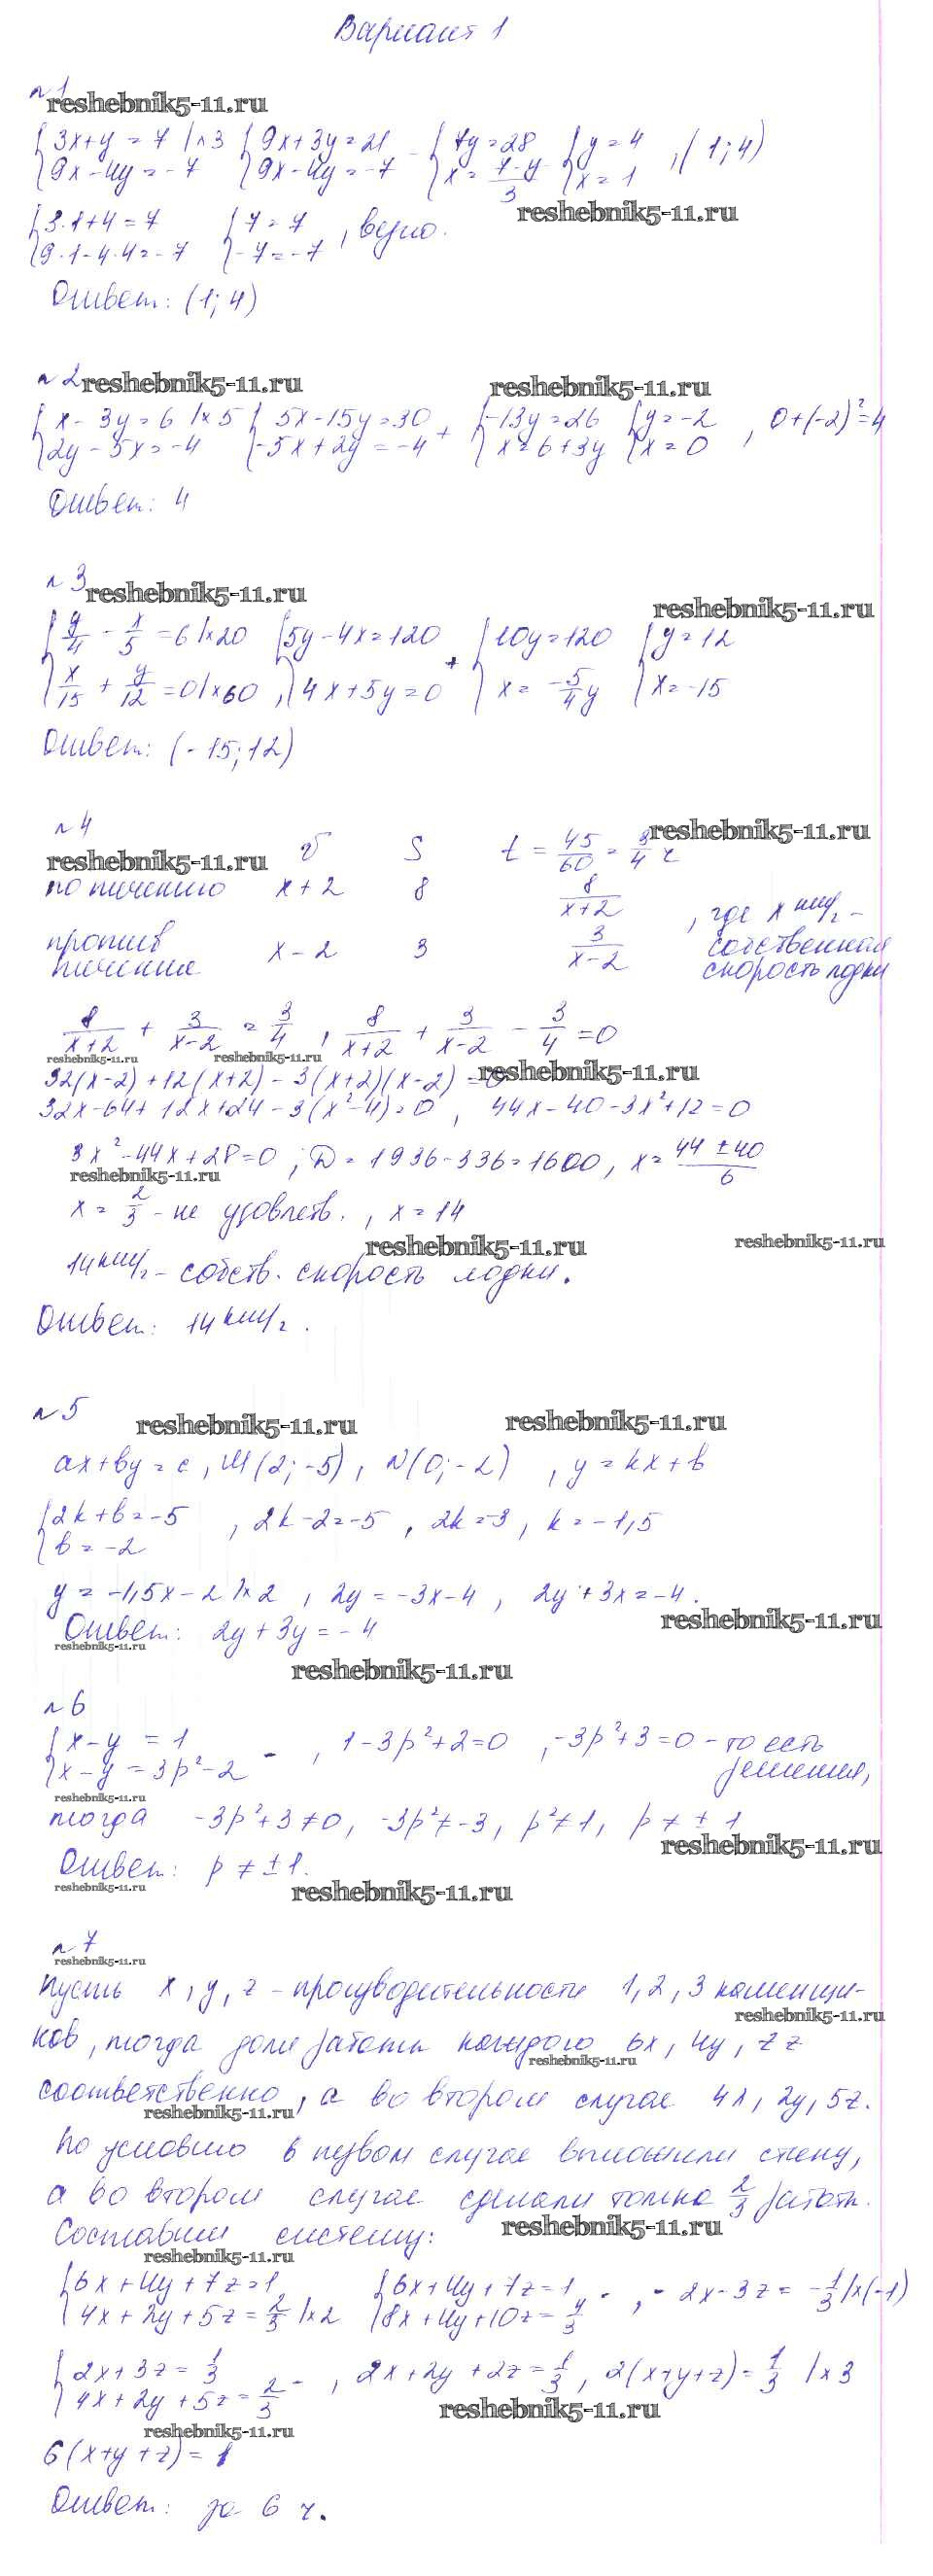 Вариант 1
№1
reshebnik5-11.ru
{3x+y=7 |×3 {9x+3y=21 - {7y=28 {y=4
{9x-4y=-7 {9x-4y=-7 {x=(7-y)/3 {x=1 , (1;4)
reshebnik5-11.ru
{3·1+4=7 {7=7
{9·1-4·4=-7 {-7=-7 , верно.
Ответ: (1;4)
№2 reshebnik5-11.ru reshebnik5-11.ru
{x-3y=6 |×5 {5x-15y=30 + {-13y=26 {y=-2 , 0+(-2)²=4
{2y-5x=-4 {-5x+2y=-4 {x=6+3y {x=0
Ответ: 4
№3 reshebnik5-11.ru reshebnik5-11.ru
{y/4 - x/5 = 6 |×20 {5y-4x=120 + {10y=120 {y=12
{x/15 + y/12 = 0 |×60 , {4x+5y=0 {x=-5/4y {x=-15
Ответ: (-15;12)
№4 reshebnik5-11.ru
reshebnik5-11.ru v S t = 45/60 = 3/4 ч
по течению x+2 8 8/(x+2)
против течения x-2 3 3/(x-2) , где x км/ч - собственная скорость лодки
8/(x+2) + 3/(x-2) = 3/4 , 8/(x+2) + 3/(x-2) - 3/4 = 0
reshebnik5-11.ru reshebnik5-11.ru
32(x-2)+12(x+2)-3(x+2)(x-2)=0 reshebnik5-11.ru
32x-64+12x+24-3(x²-4)=0 , 44x-40-3x²+12=0
3x²-44x+28=0 ; D=1936-336=1600, x=(44±40)/6
reshebnik5-11.ru
x=2/3 - не удовлетв. , x=14
reshebnik5-11.ru reshebnik5-11.ru
14 км/ч - собств. скорость лодки.
Ответ: 14 км/ч.
№5
reshebnik5-11.ru reshebnik5-11.ru
ax+by=c , M(2;-5), N(0;-2) , y=kx+b
{2k+b=-5
{b=-2 , 2k-2=-5 , 2k=-3 , k=-1,5
y=-1,5x-2 |×2 , 2y=-3x-4 , 2y+3x=-4.
reshebnik5-11.ru
Ответ: 2y+3y=-4
reshebnik5-11.ru
reshebnik5-11.ru
№6
{x-y=1
{x-y=3p²-2 - , 1-3p²+2=0 , -3p²+3=0 - то есть решения,
reshebnik5-11.ru
тогда -3p²+3≠0, -3p²≠-3, p²≠1, p≠±1
reshebnik5-11.ru
Ответ: p≠±1.
reshebnik5-11.ru reshebnik5-11.ru
№7
reshebnik5-11.ru
Пусть x, y, z - производительности 1, 2, 3 каменщи-
reshebnik5-11.ru
ков, тогда доли работы каждого 6x, 4y, 7z
reshebnik5-11.ru
соответственно, а во втором случае 4x, 2y, 5z.
reshebnik5-11.ru
По условию в первом случае выложили стену,
а во втором случае сделали только 2/3 работы.
Составим систему: reshebnik5-11.ru
reshebnik5-11.ru
{6x+4y+7z=1 {6x+4y+7z=1
{4x+2y+5z=2/3 |×2 {8x+4y+10z=4/3 - , -2x-3z=-1/3 |×(-1)
{2x+3z=1/3
{4x+2y+5z=2/3 - , 2x+2y+2z=1/3 , 2(x+y+z)=1/3 |×3
reshebnik5-11.ru
reshebnik5-11.ru
6(x+y+z)=1
Ответ: за 6 ч.